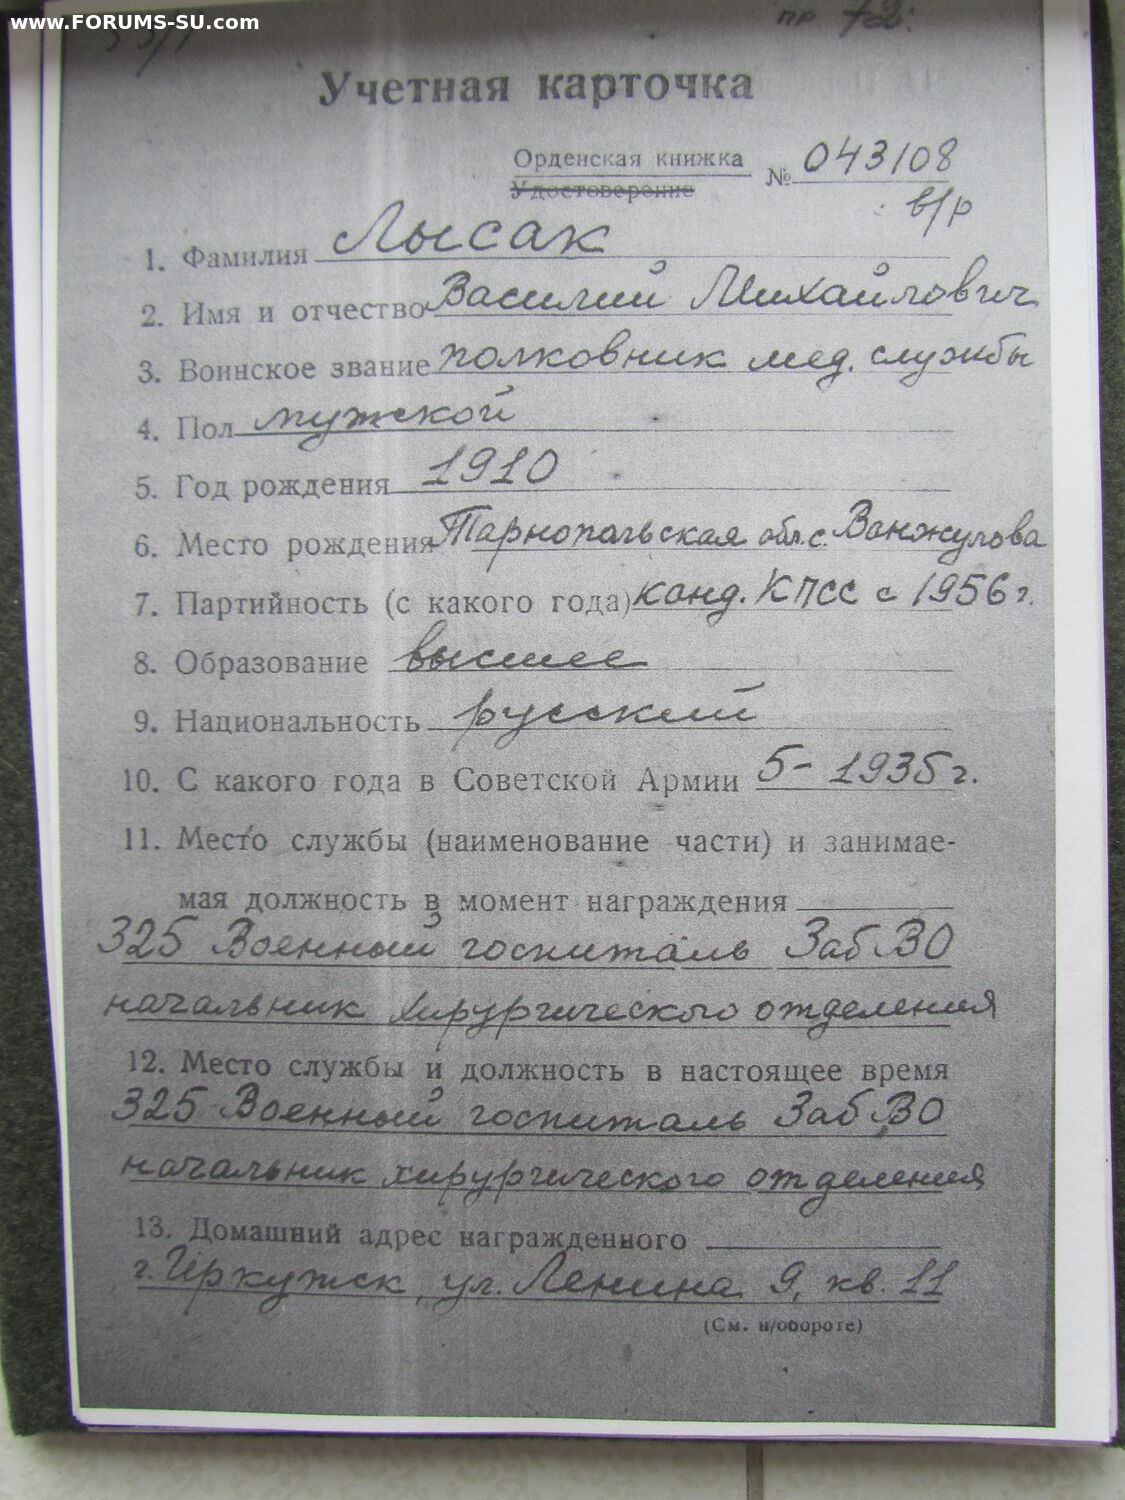 www.FORUMS-SU.com
пр. 72.
Учетная карточка
Орденская книжка
Удостоверение
№ 043108
в/р
1. Фамилия Лысак
2. Имя и отчество Василий Михайлович
3. Воинское звание полковник мед. службы
4. Пол мужской
5. Год рождения 1910
6. Место рождения Тарнопольская обл. с. Ванжулова
7. Партийность (с какого года) канд. КПСС с 1956 г.
8. Образование высшее
9. Национальность русский
10. С какого года в Советской Армии 5-1935 г.
11. Место службы (наименование части) и занимае-
мая должность в момент награждения
325 Военный госпиталь ЗабВО
начальник хирургического отделения
12. Место службы и должность в настоящее время
325 Военный госпиталь ЗабВО
начальник хирургического отделения
13. Домашний адрес награжденного
г. Иркутск, ул. Ленина 9, кв. 11
(См. н/обороте)